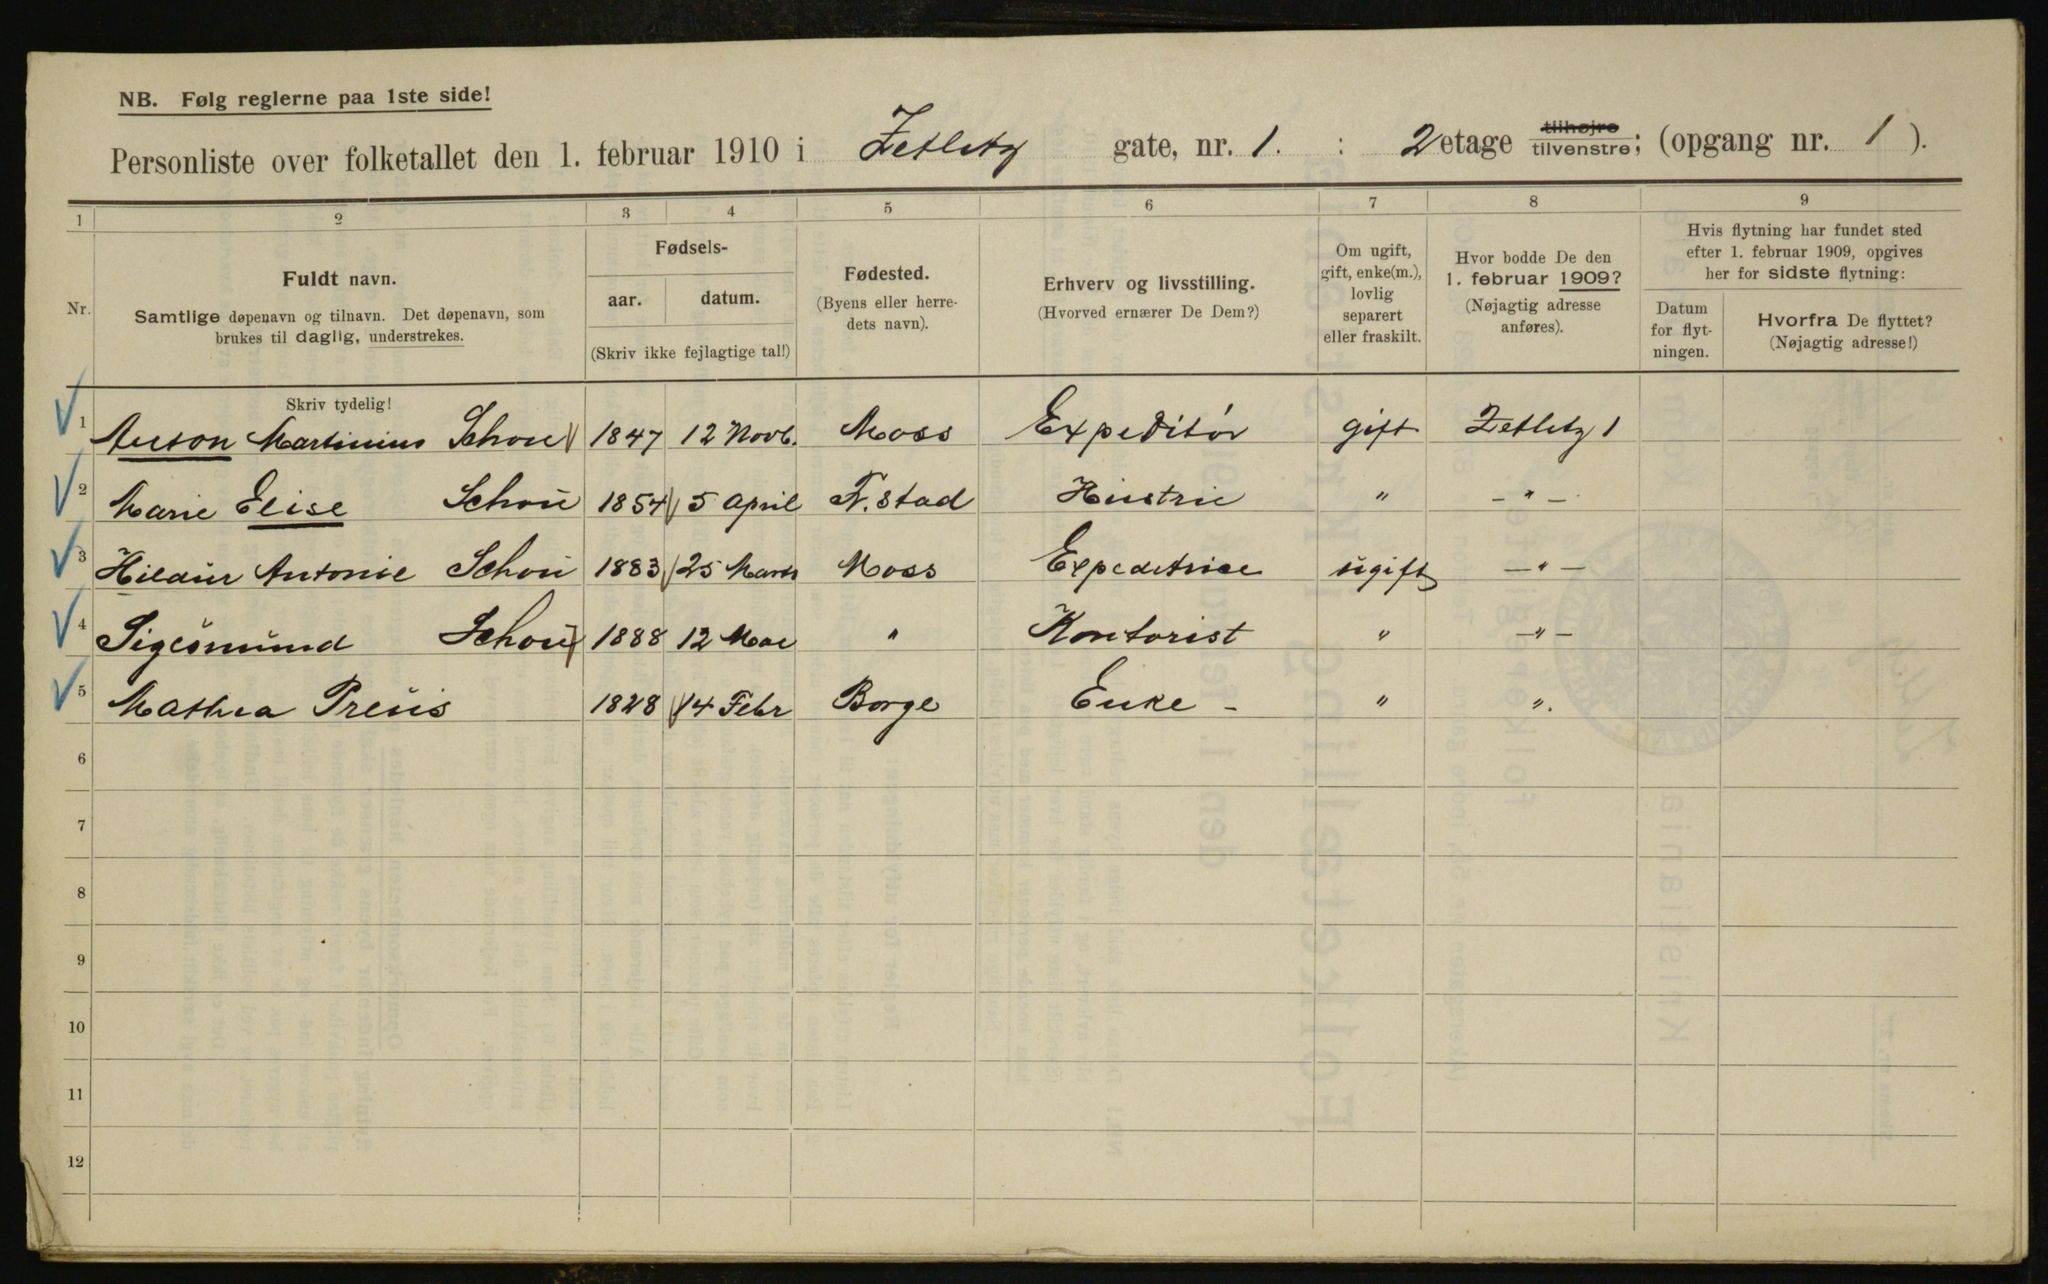 NB. Følg reglerne paa 1ste side!
Personliste over folketallet den 1. februar 1910 i Zetlitz gate, nr. 1. : 2 etage tilhøjre tilvenstre; (opgang nr. 1 ).
1 2 3 4 5 6 7 8 9
Nr.
Fuldt navn.
Samtlige døpenavn og tilnavn. Det døpenavn, som
brukes til daglig, understrekes.
Skriv tydelig!
Fødsels-
aar. datum.
(Skriv ikke fejlagtige tal!)
Fødested.
(Byens eller herre-
dets navn).
Erhverv og livsstilling.
(Hvorved ernærer De Dem?)
Om ugift,
gift, enke(m.),
lovlig
separert
eller fraskilt.
Hvor bodde De den
1. februar 1909?
(Nøjagtig adresse
anføres).
Hvis flytning har fundet sted
efter 1. februar 1909, opgives
her for sidste flytning:
Datum
for flyt-
ningen.
Hvorfra De flyttet?
(Nøjagtig adresse!)
1 Anton Martinius Schou 1847 12 Novb. Moss Expeditør gift Zetlitz 1
2 Marie Elise Schou 1854 5 April F. stad Hustru " – " –
3 Hildur Antonie Schou 1883 25 Marts Moss Expeditrice ugift – " –
4 Sigismund Schou 1888 12 Mai " Kontorist " – " –
5 Mathea Preus 1828 14 Febr Borge Enke – " ".
6
7
8
9
10
11
12